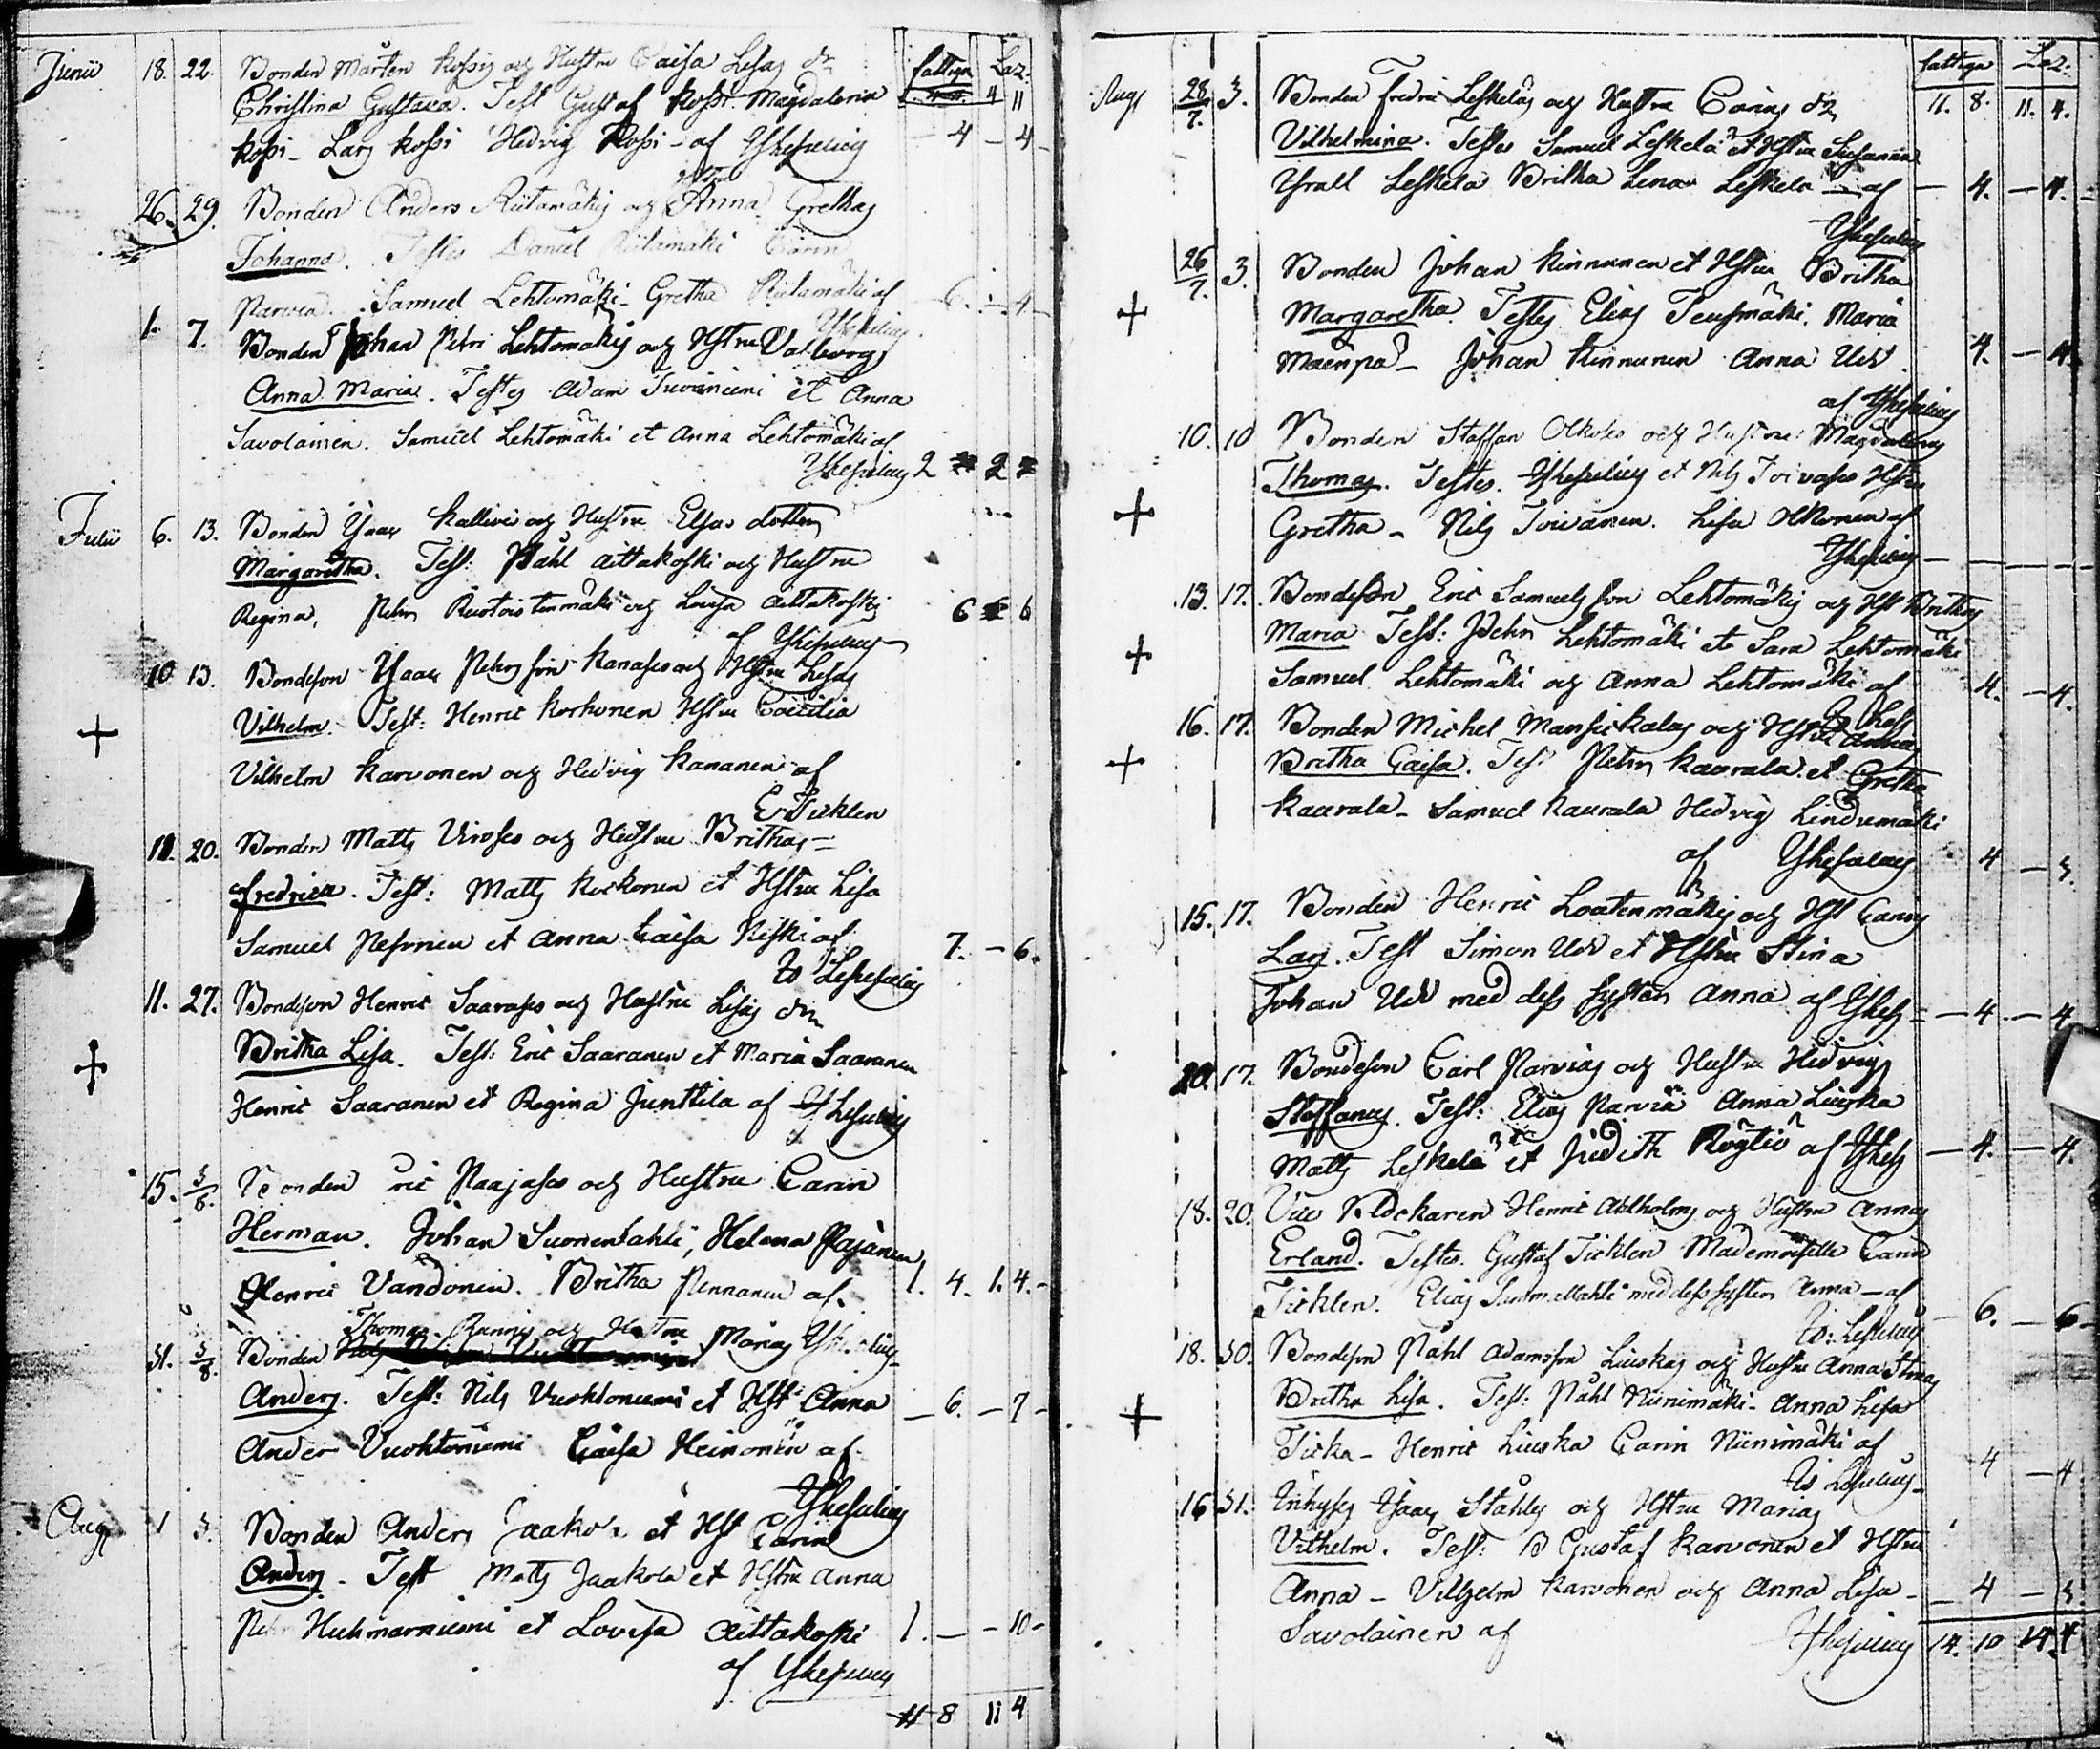 Junii 18. 22. Bonden Mårten Kossis och Hustru Caisa Lisas dr fattiga Laz:
Christina Gustava. Test Gustaf Kossi Magdalena 4 11
Kossi - Lars Kossi Hedvig Kossi - af - 4 - 4 -
26. 29. Bonden Anders Riitamäkis och Hstru Anna Grethas
Johanna. Testes Daniel Riitamäki Carin
Parvia. Samuel Lehtomäki - Gretha Riitamäki af 6. - 4 -
1. 7. Bonden Johan Petri Lehtomäkis och Hstru Valborgs
Anna Maria. Testes Adam Juvaniemi et Anna
Savolainen. Samuel Lehtomäki et Anna Lehtomäki af
2 2
Julii 6. 13. Bonden Ysaac Kallivi och Hustru Elsas dotter
Margaretha. Test: Påhl Aittakoski och Hustru
Regina, Petr Ruotois tenmäki och Lovisa Aittakoski 6 6
af
10 13. Bondeson Ysaac Petersson Kanases och Hstru Lisas
Vilhelm. Test: Henric Korhonen Hstru Coecilia
+
Vilhelm Karvonen och Hedvig Kananen af
E. Ticklen
11. 20. Bonden Matts Vinses och Hustru Brithas
Fredrica. Test: Matts Kockonen et Hstru Lisa
Samuel Pesonen et Anna Caisa Niski af 7. - 6.
11. 27. Bondeson Henric Saarases och Hustru Lisas dr
Britha Lisa. Test: Eric Saaranen et Maria Saaranen
+
Henric Saaranen et Regina Junttila af
15. 3/8. Bonden Eric Paajases och Hustru Carin
Herman. Johan Suomensahti, Helena Pajanen
Henric Vandonen. Britha Pennanen af 1. 4. 1. 4. -
Thomas Rannis och Hstru
31. 3/8. Bonden Marias
Anders. Test: Nils Vuohtoniemi et Hst: Anna - 6. - 7 -
Ander Vuohtoniemi Caisa Heinonen af
Aug 1 3. Bonden Anders Jaakola et Hst Carin
Anders. Test Matts Jaakola et Hstru Anna
Petr Huhmarniemi et Lovisa Aittakoski 1. - - 10 -
af
11 8 11 4
fattiga Laz.
Aug 28/7. 3. Bonden Fredric Leskeläs och Hustru Carins dr 11. 8. 11. 4.
Vilhelmina. Testes Samuel Leskelä et Hstru Susanna
Ysrall Leskelä Britha Lena Leskelä - af - 4. - 4. -
26/7. 3. Bonden Johan Kinnunen et Hstru Britha
+ Margaretha. Testes Elias Teusmäki. Maria
Mäenpä - Johan Kinnunen Anna Udd. 4. - 4.
af
10. 10 Bonden Staffan Olkoses och Hustru Magdalenas
Thomas. Testes. et Nils Toivases Hstru
+ Gretha - Nils Toivanen. Lisa Olkonen af
13. 17. Bondeson Eric Samuelsson Lehtomäkis och Hst Brithas
Maria Test: Petr Lehtomäki et Sara Lehtomäki
+ Samuel Lehtomäki och Anna Lehtomäki af 4. - 4.
16. 17. Bonden Michel Mansickalas och Hstru Annas
+ Britha Caisa. Test Petr Kaurala et Gretha
Kaurala - Samuel Kaurala Hedvig Lendumäki
af 4 - 3.
15. 17. Bonden Henric Loatenmäkis och Hst Carins
Lars. Test Simon Udd et Hstru Stina
Johan Udd med dess syster Anna af - 4 - 4
20. 17. Bondeson Carl Parvias och Hustru Hedvigs
Staffanus. Test: Elias Parvia Anna Liuska
Matts Leskelä et Judith Röytiö af - 4. - 4.
18. 20. Vice Klockaren Henric Ahlholms och Hustru Annas
Erland. Testes. Gustaf Ticklen Mademoiselle Carin
Ticklen. Elias Summallahti med dess syster Anna - af - 6. - 6 -
18. 30. Bondeson Påhl Adamsson Liuskas och Hustru Anna Stinas
Britha Lisa. Test: Påhl Niinimäki - Anna Lisa
+ Ticka - Henric Liuska Carin Niinimäki af 4 - 4
16 31. Inhyses Ysaac Ståhls och Hstru Marias
Vilhelm. Test: B Gustaf Karvonen et Hstru
Anna - Vilhelm Karvonen och Anna Lisa - - 4 - 3
Savolainen af 14. 10 14. 4